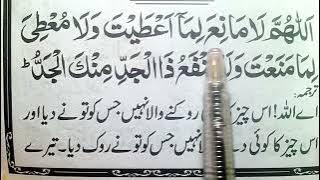 اَللّٰهُمَّ لَا مَانِعَ لِمَاۤ اَعْطَيْتَ وَلَا مُعْطِیَ
لِمَا مَنَعْتَ وَلَا يَنْفَعُ ذَا الْجَدِّ مِنْكَ الْجَدُّ ؕ
ترجمہ:
اے اللہ! اس چیز روکنے والا نہیں جس کو تو نے دیا اور
اس چیز کا کوئی نہیں جس کو تو نے روک دیا۔ تیرے